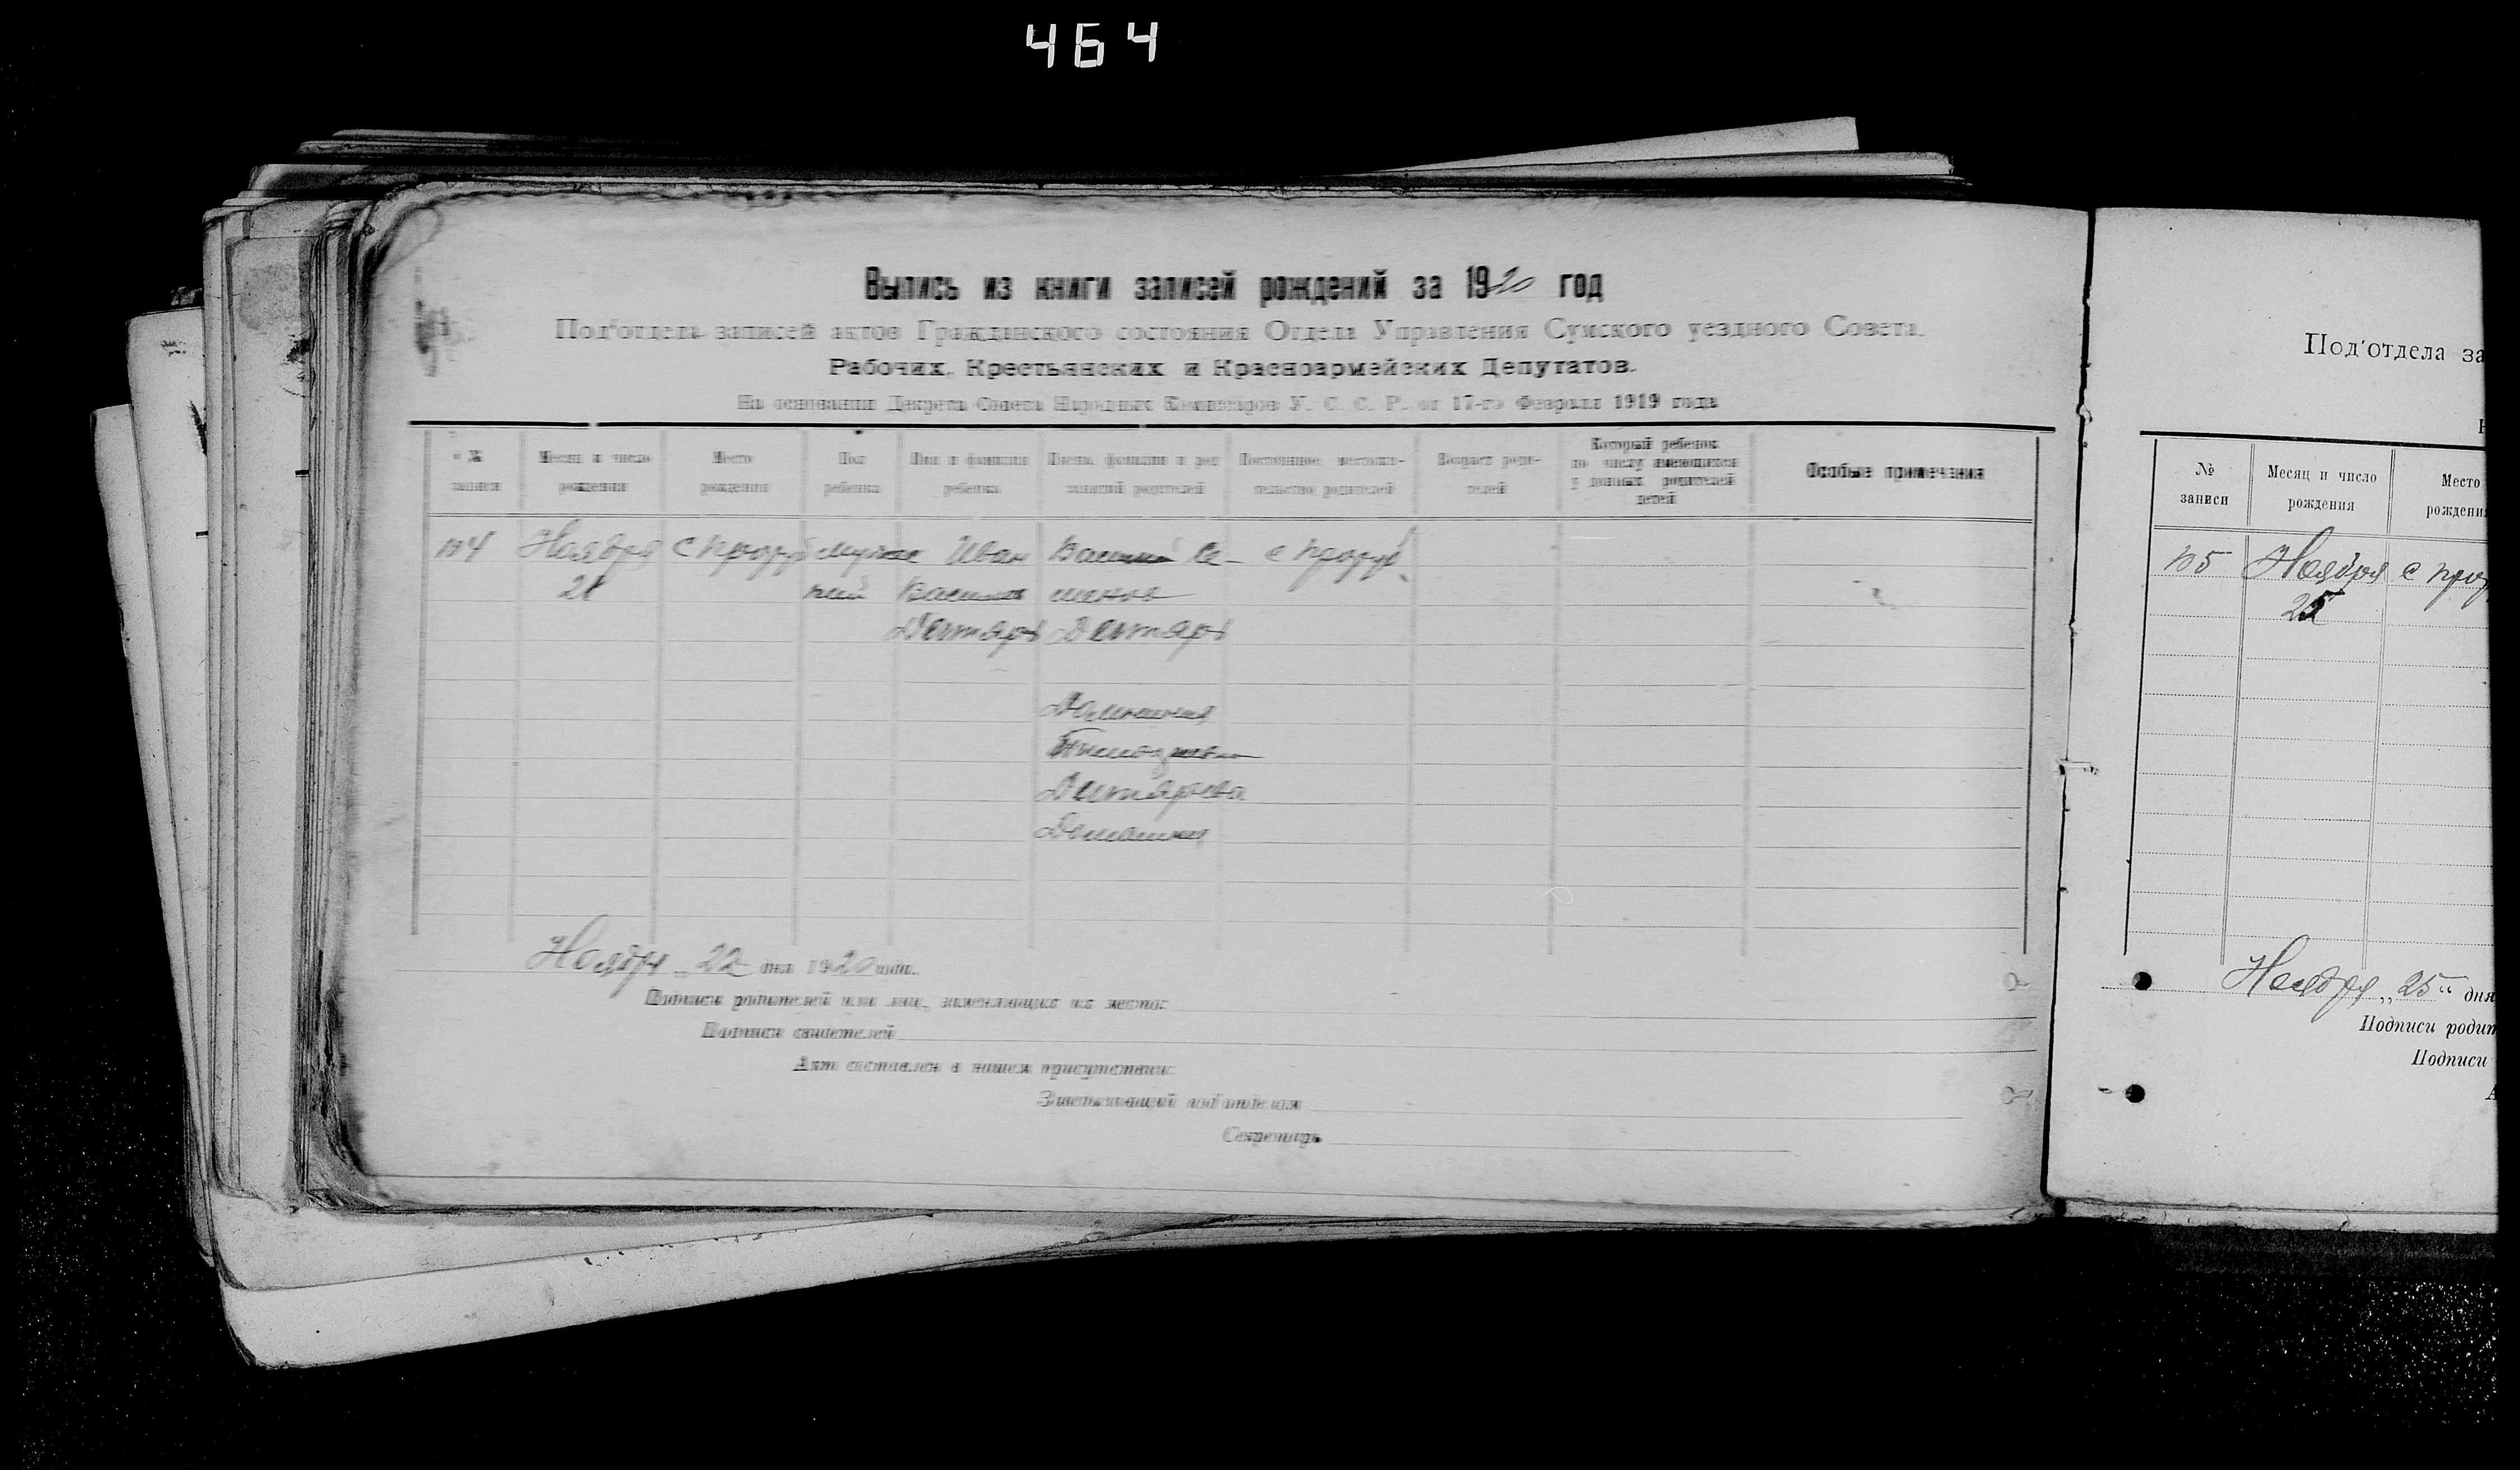 464
Выпись из книги записей рождений за 1920 год
Под'отдела записей актов Гражданского состояния Отдела Управления Сумского уездного Совета.
Рабочих, Крестьянских и Красноармейских Депутатов.
На основании Декрета Совета Народных Комиссаров У. С. С. Р. от 17-го Февраля 1919 года
№ записи
Месяц и число рождения
Место рождения
Пол ребенка
Имя и фамилия ребенка
Имена, фамилии и род занятий родителей
Постоянное местожительство родителей
Возраст родителей
Который ребенок по числу имеющихся у данных родителей детей
Особые примечания
104 Ноября с Иван Василий Се- с
21 Василев менов
Дегтярь Дегтярь
Дегтярева
Домашняя
Ноября „22 дня 1920 года.
Подписи родителей или лиц, заменяющих их место:
Подписи свидетелей
Акт составлен в нашем присутствии:
Заведывающий под'отделом
Секретарь
Под'отдела за
№ записи
Месяц и число рождения
Место
105 Ноября с
25
Ноября „25“ дня
Подписи
Подписи